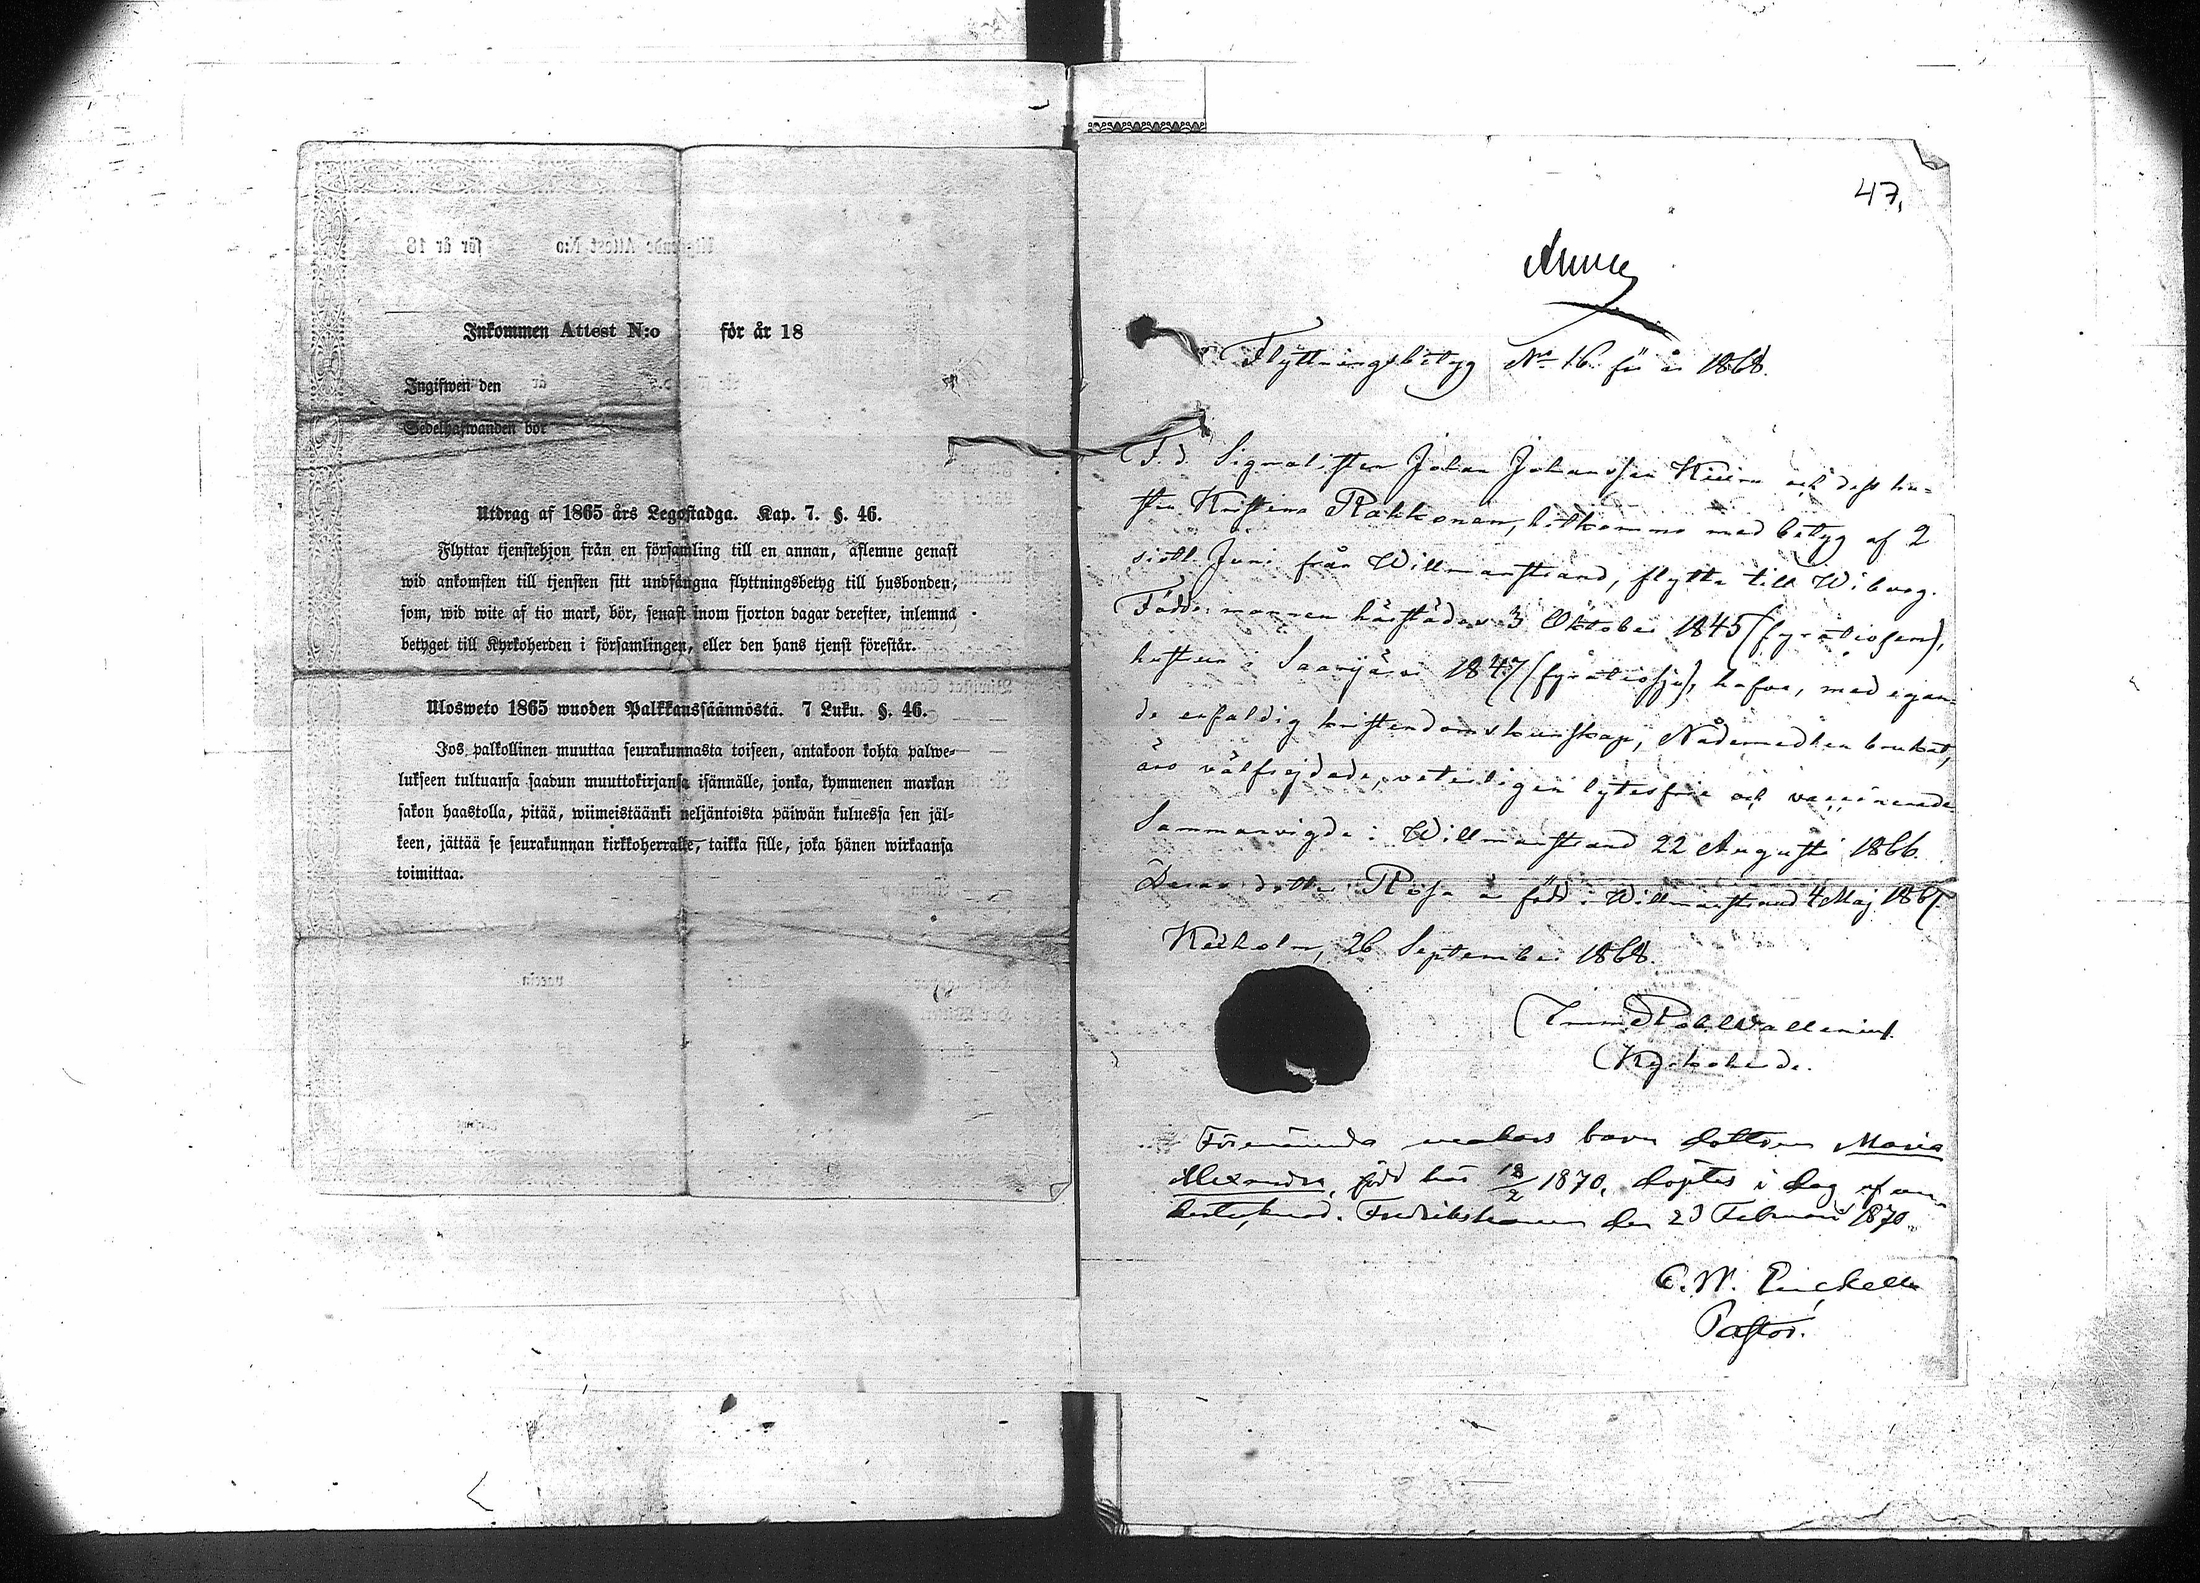 Inkommen Attest N:o för år 18
Ingifwen den
Sedelhafwanden bor
Utdrag af 1865 års Legostadga. Kap. 7. §. 46.
Flyttar tjenstehjon från en församling till en annan, aflemne genast
wid ankomsten till tjensten sitt undfångna flyttningsbetyg till husbonden,
som, wid wite af tio mark, bör, senast inom fjorton dagar derefter, inlemna
betyget till Kyrkoherden i församlingen, eller den hans tjenst förestår.
Ulosweto 1865 wuoden Palkkaussäännöstä. 7 Luku. §. 46.
Jos palkollinen muuttaa seurakunnasta toiseen, antakoon kohta palwe-
lukseen tultuansa saadun muuttokirjansa isännälle, jonka, kymmenen markan
sakon haastolla, pitää, wiimeistäänki neljäntoista päiwän kuluessa sen jäl-
keen, jättää se seurakunnan kirkkoherralle, taikka sille, joka hänen wirkaansa
toimittaa.
47.
Flyttningsbetyg No 16 för år 1868.
F.d. Signalisten Johan Johansson och dess hu-
stru Kristina Rakkonen, hitkomne med betyg af 2
sistl. Juni från Willmanstrand, flytta till Wiborg.
Födde: mannen härstädes 3 Oktober 1845 (fyratiofem),
hustrun i Saarijärvi 1847 (fyratiosju), hafva, med egan-
de enfaldig kristendomskunskap, Nådemedlen brukat,
äro välfrejdade, veterligen lytesfria och vaccinerade
Sammanvigde i Willmanstrand 22 Augusti 1866.
Deras dotter Rosa är född i Willmanstrand 4 Maj 1867.
Kexholm, 26 September 1868.
Wallenius
Kyrkoherde.
Förenämnda makars barn dottren Maria
Alexandra, född här 18/2 1870, döptes i dag af un-
dertecknad. Fredrikshamn den 23 Februari 1870.
C. W.
Pastor.